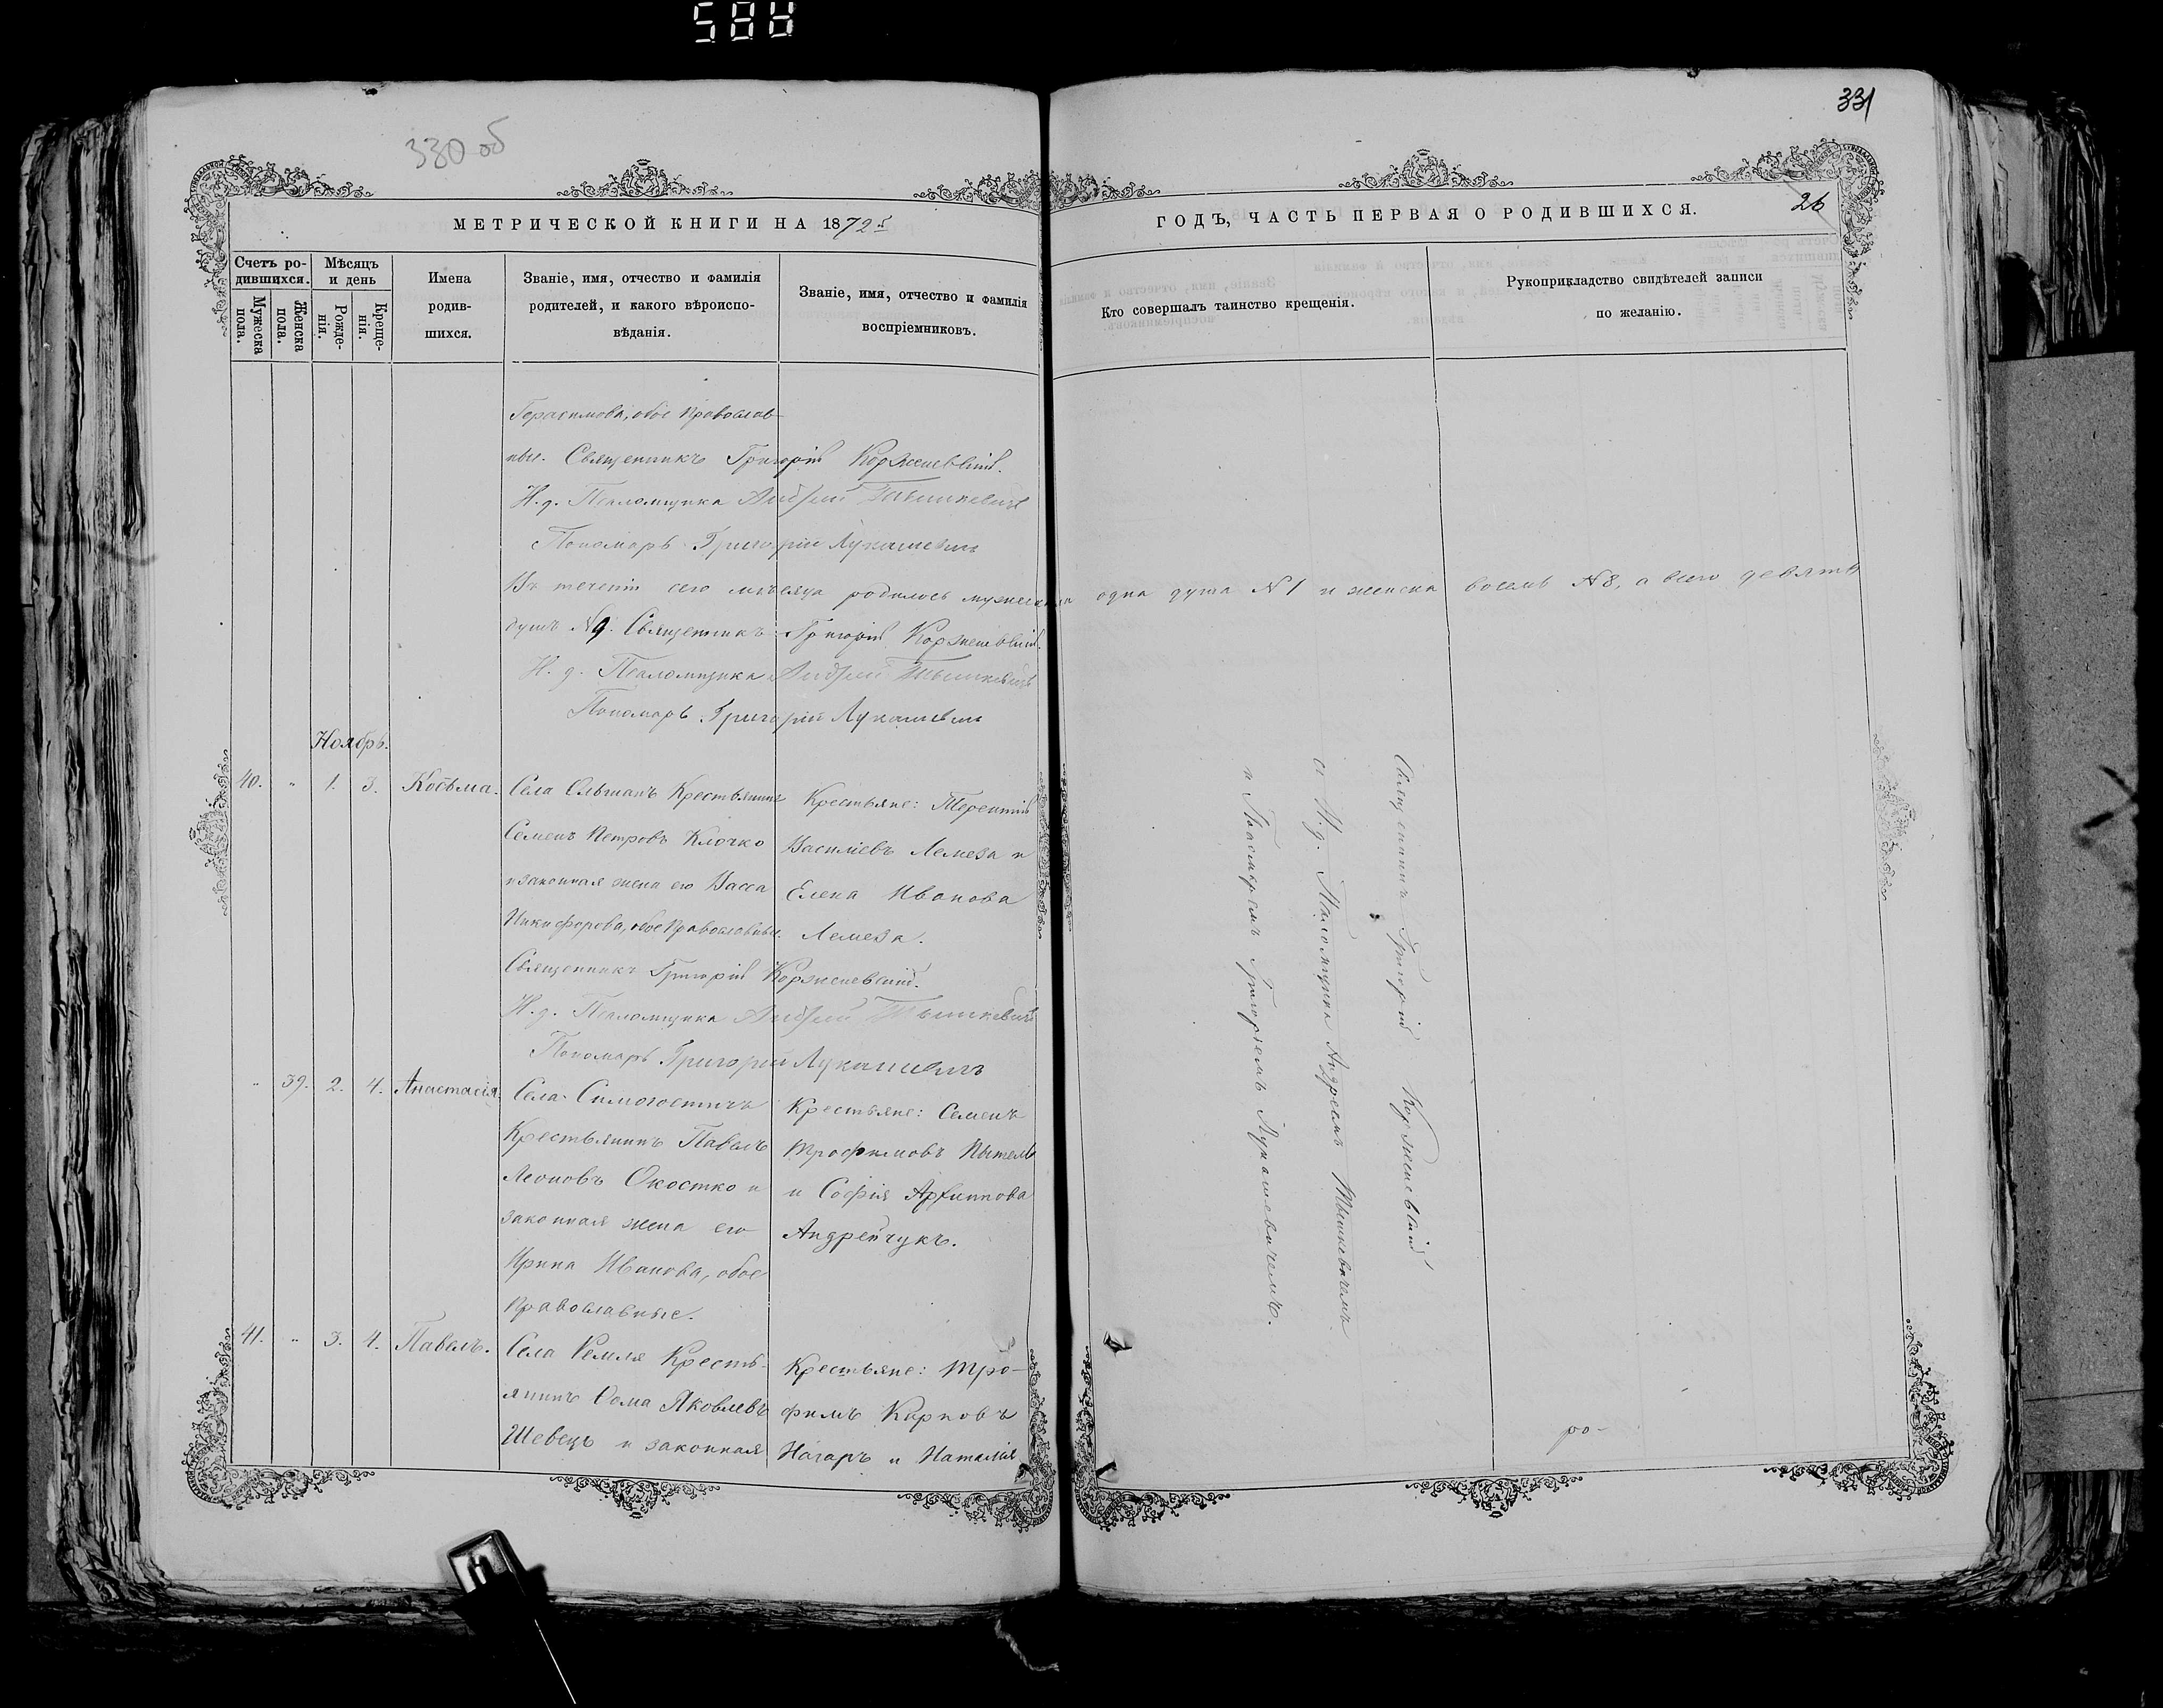 588
331
330 об
26
МЕТРИЧЕСКОЙ КНИГИ НА 1872й
ГОДЪ, ЧАСТЬ ПЕРВАЯ О РОДИВШИХСЯ.
Счетъ ро-
дившихся.
Мужеска
пола.
Женска
пола.
Мѣсяцъ
и день
Рожде-
нія.
Креще-
нія.
Имена
родив-
шихся.
Званіе, имя, отчество и фамилія
родителей, и какого вѣроиспо-
вѣданія.
Званіе, имя, отчество и фамилія
воспріемниковъ.
Кто совершалъ таинство крещенія.
Рукоприкладство свидѣтелей записи
по желанію.
Герасимова, обое Православ-
ные. Священникъ Григорій Корженевскій.
И. д. Псаломщика Андрей Тышкевичъ
Пономарь Григорій Лукашевичъ
Въ теченіи сего мѣсяца родилось мужеска одна душа N 1 и женска восемь N 8, а всего девять
душъ N 9. Священникъ Григорій Корженевскій.
И. д. Псаломщика Андрей Тышкевичъ
Пономарь Григорій Лукашевичъ
Ноябрь.
40. " 1. 3. Косьма.
Села Ольманъ Крестьянинъ
Семенъ Петровъ Клочко
и законная жена его Васса
Никифорова, обое Православные.
Крестьяне: Терентій
Василіевъ Лемеза и
Елена Иванова
Лемеза.
Священникъ Григорій Корженевскій.
И. д. Псаломщика Андрей Тышкевичъ
Пономарь Григорій Лукашевичъ
" 39. 2. 4. Анастасія.
Села
Крестьянинъ Павелъ
Леоновъ Окостко и
законная жена его
Ирина Иванова, обое
Православные.
Крестьяне: Семенъ
Трофимовъ Пытель
и Софія Архиппова
Андрейчукъ.
41. " 3. 4. Павелъ.
Села Ремля Кресть-
янинъ Ѳома Яковлевъ
Шевецъ и законная
Крестьяне: Тро-
фимъ Карповъ
Нагаръ и Наталія
Священникъ Григорій Корженевскій
съ И. д. Псаломщика Андреемъ Тышкевичемъ
и Пономаремъ Григоріемъ Лукашевичемъ.
ро-